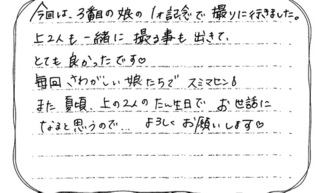 今回は、3番目の娘の1才記念で撮りに行きました。
上2人も一緒に撮る事も出きて、
とても良かったです♡
毎回さわがしい娘たちでスミマセン!
また夏頃、上の2人のたん生日でお世話に
なると思うので… よろしくお願いします♡